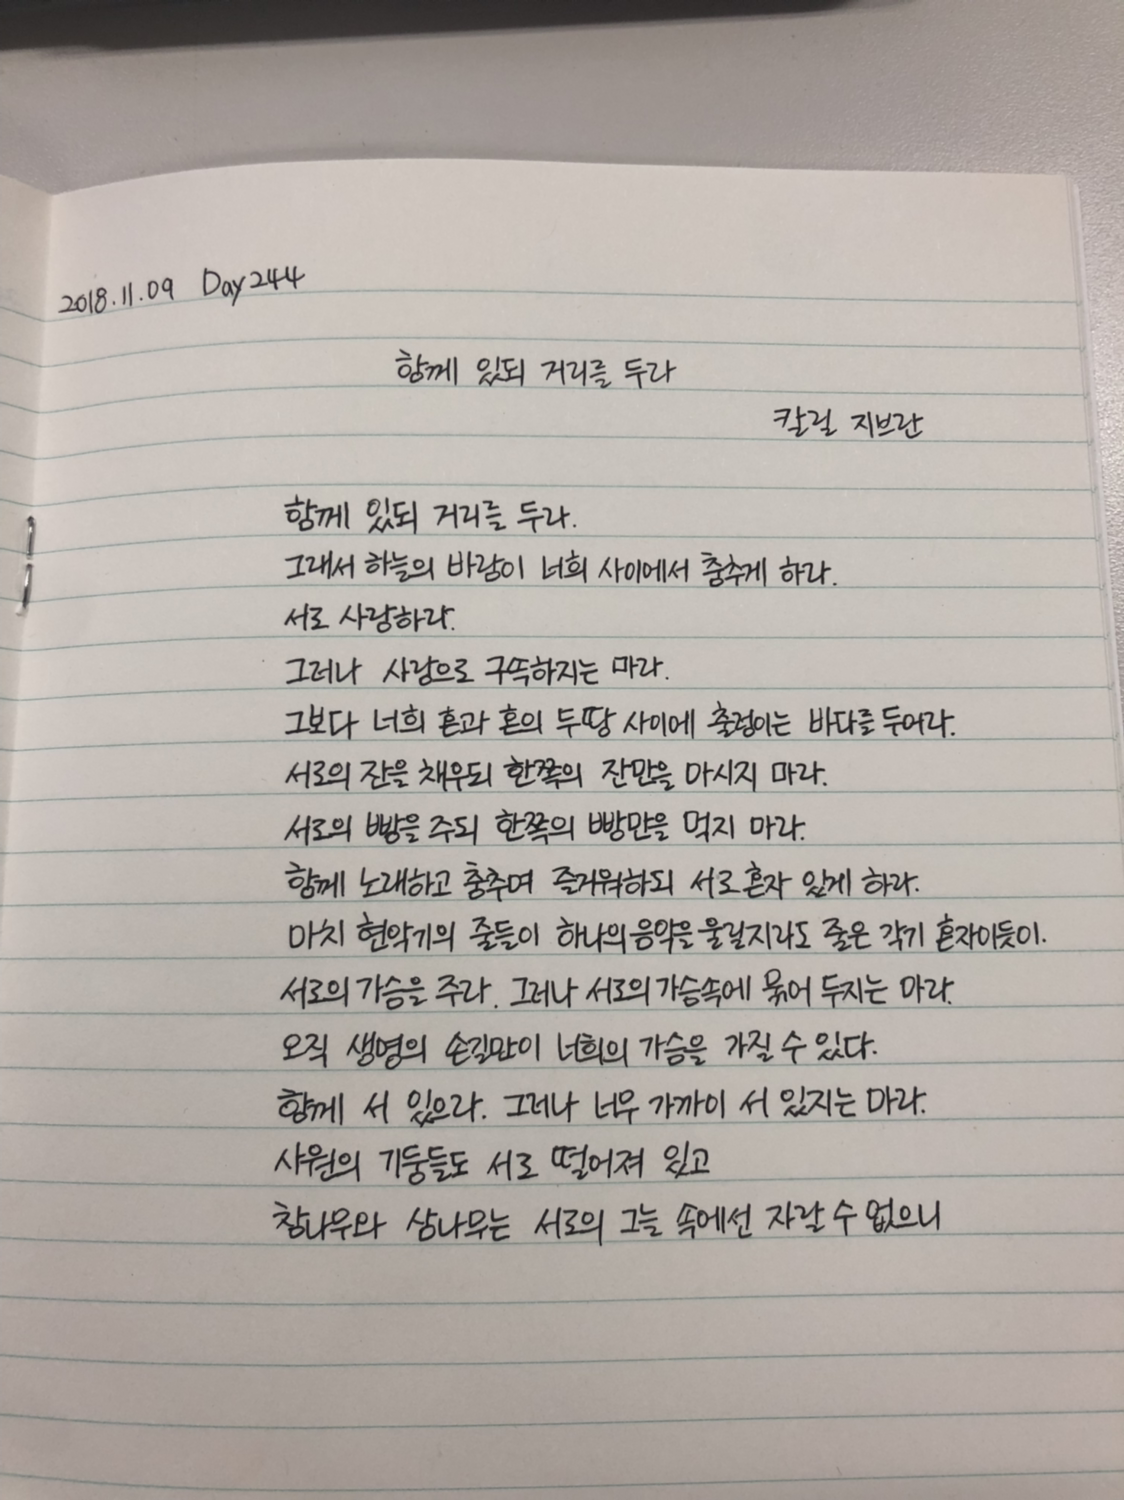 2018.11.09 Day244
함께 있되 거리를 두라
칼릴 지브란
함께 있되 거리를 두라.
그래서 하늘의 바람이 너희 사이에서 춤추게 하라.
서로 사랑하라.
그러나 사랑으로 구속하지는 마라.
그보다 너희 혼과 혼의 두땅 사이에 출렁이는 바다를 두어라.
서로의 잔을 채우되 한쪽의 잔만을 마시지 마라.
서로의 빵을 주되 한쪽의 빵만을 먹지 마라.
함께 노래하고 춤추며 즐거워하되 서로 혼자 있게 하라.
마치 현악기의 줄들이 하나의 음악을 울릴지라도 줄은 각기 혼자이듯이.
서로의 가슴을 주라. 그러나 서로의 가슴속에 묶어 두지는 마라.
오직 생명의 손길만이 너희의 가슴을 가질 수 있다.
함께 서 있으라. 그러나 너무 가까이 서 있지는 마라.
사원의 기둥들도 서로 떨어져 있고
참나무와 삼나무는 서로의 그늘 속에선 자랄 수 없으니